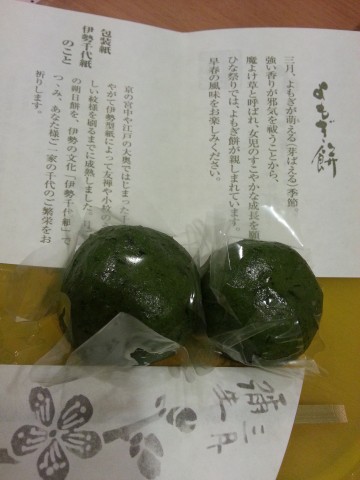 よもぎ餅
三月、よもぎが萌える(芽ばえる)季節。
強い香りが邪気を祓うことから、
魔よけ草と呼ばれ、女児のすこやかな成長を願
ひな祭りでは、よもぎ餅が親しまれています。
早春の風味をお楽しみください。
包装紙
伊勢千代紙
のこと
京の宮中や江戸の大奥ではじまった
やがて伊勢型紙によって友禅や小紋の
しい紋様を刷るまでに成熟しました。
の朔日餅を、伊勢の文化「伊勢千代紙」で
つゝみ、あなた様ご一家の千代のご繁栄をお
祈りします。
三月
彌生